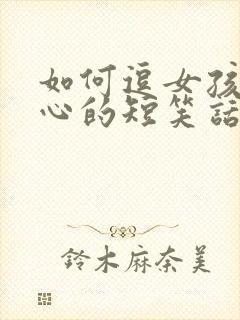 如何逗女孩
心的短笑話
鈴木麻奈美